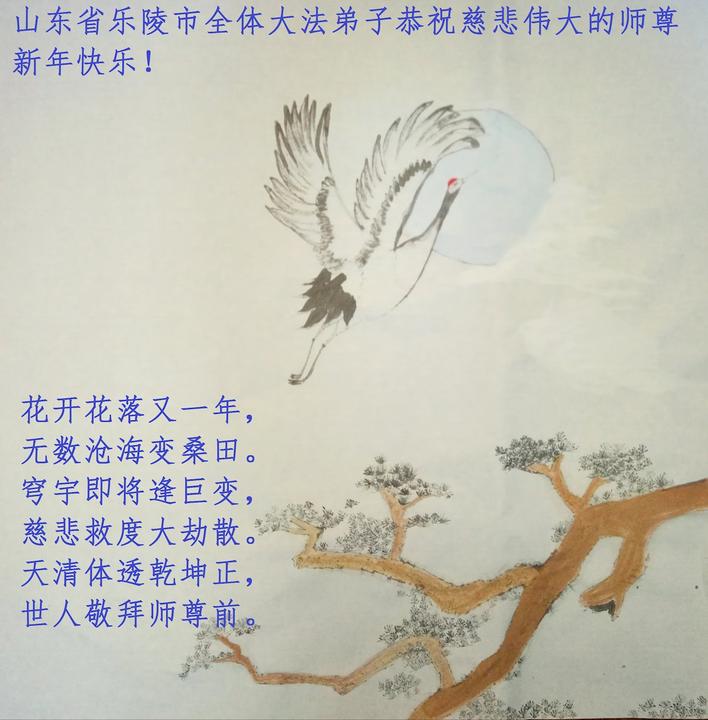 山东省乐陵市全体大法弟子恭祝慈悲伟大的师尊
新年快乐！
花开花落又一年，
无数沧海变桑田。
穹宇即将逢巨变，
慈悲救度大劫散。
天清体透乾坤正，
世人敬拜师尊前。